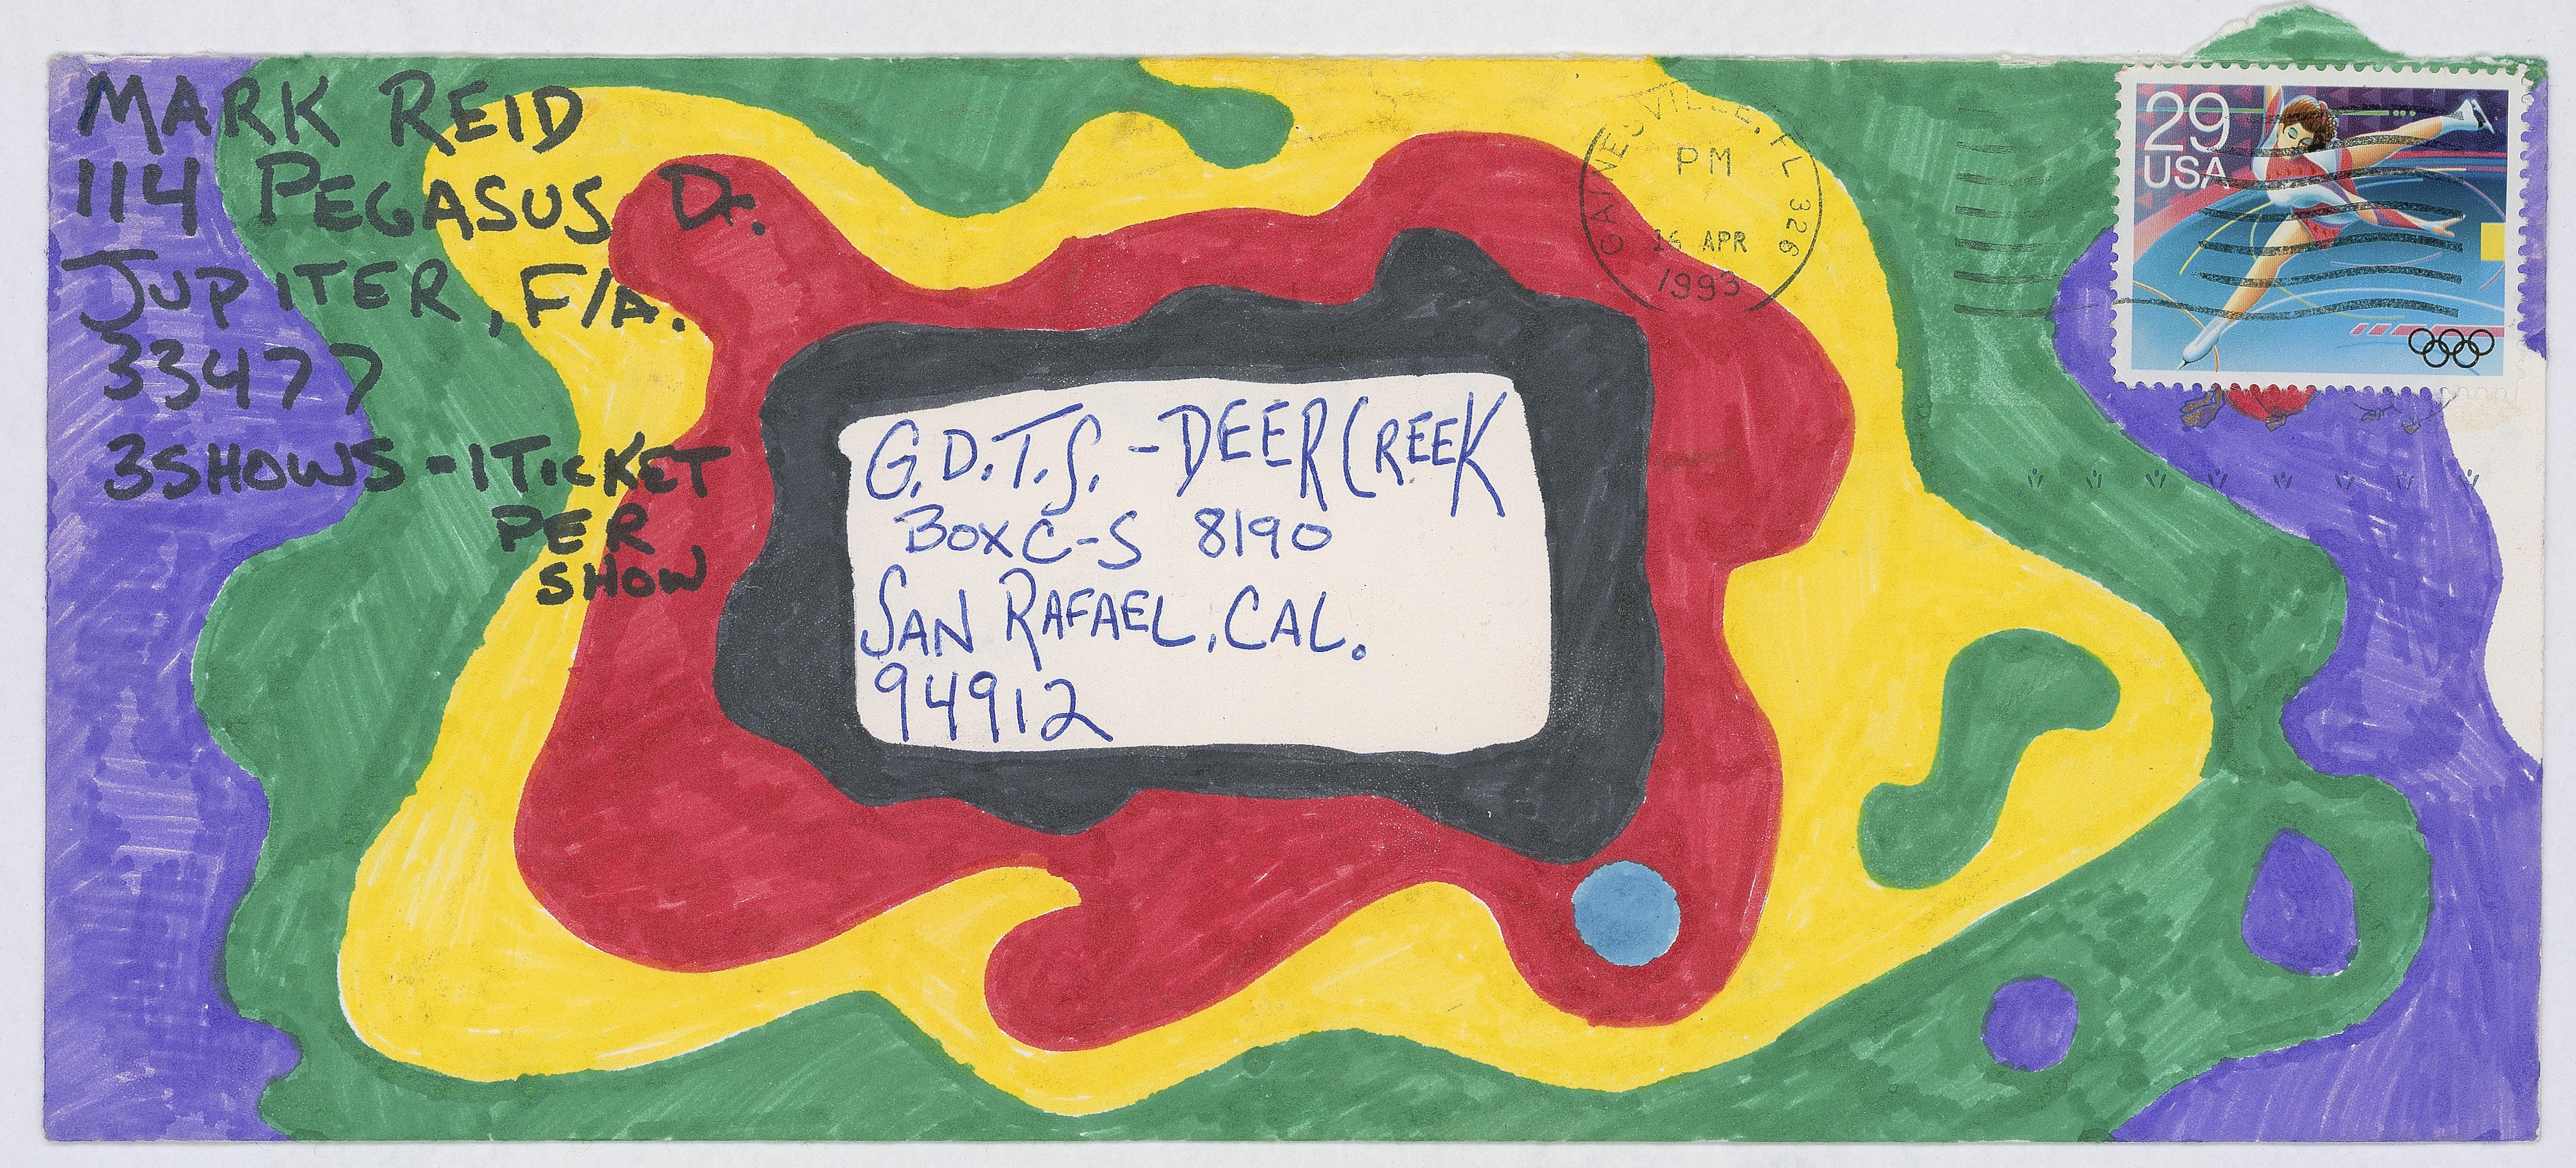 MARK REID
114 PEGASUS Dr.
JUPITER, FlA.
33477
3SHOWS - 1 TICKET
PER
SHOW
G.D.T.S. - DEER CREEK
BOX C-S 8190
SAN RAFAEL, CAL.
94912
GAINESVILLE, FL 326
PM
16 APR
1993
29
USA